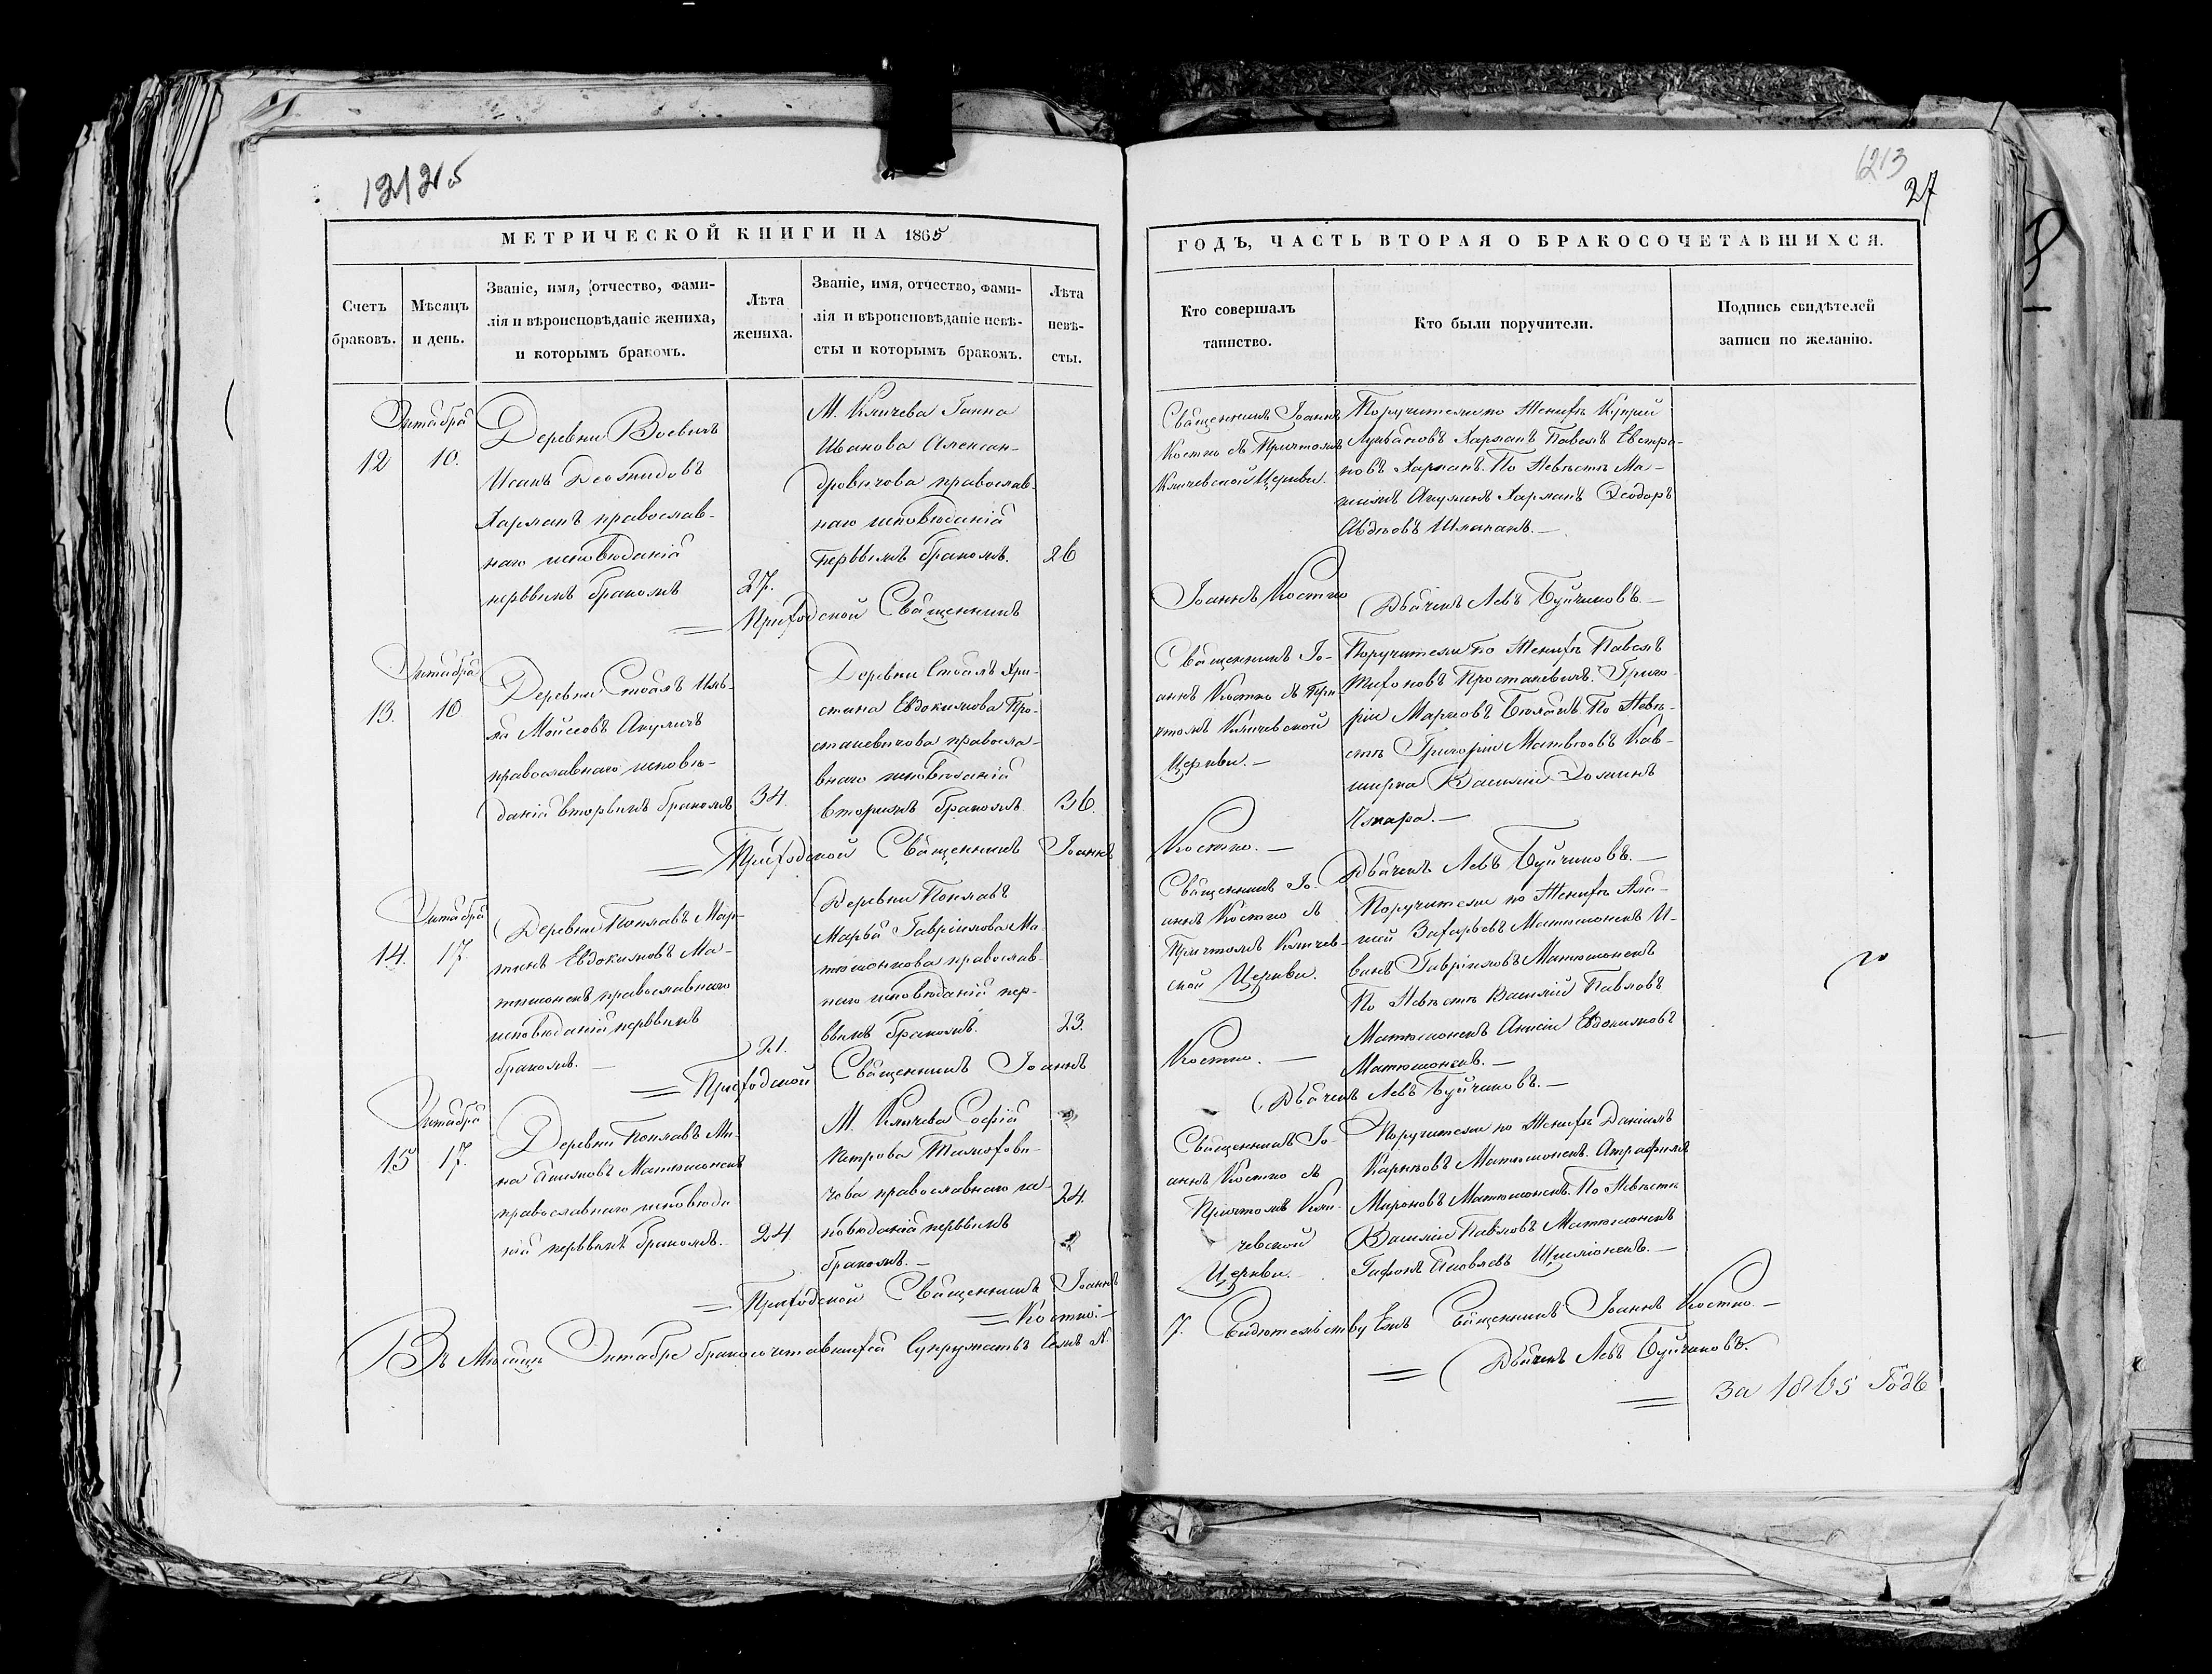 1213
27
МЕТРИЧЕСКОЙ КНИГИ НА 1865
ГОДЪ, ЧАСТЬ ВТОРАЯ О БРАКОСОЧЕТАВШИХСЯ.
Счетъ
браковъ.
Мѣсяцъ
и день.
Званіе, имя, отчество, фами-
лія и вѣроисповѣданіе жениха,
и которымъ бракомъ.
Лѣта
жениха.
Званіе, имя, отчество, фами-
лія и вѣроисповѣданіе невѣ-
сты и которымъ бракомъ.
Лѣта
невѣ-
сты.
Кто совершалъ
таинство.
Кто были поручители.
Подпись свидѣтелей
записи по желанію.
Октября
12
10.
Деревни Воевичъ
Исакъ
Харланъ православ-
наго исповѣданія
первымъ бракомъ
27.
М. Кличева Ганна
Иванова Алексан-
дровичова православ-
наго исповѣданія
первымъ бракомъ.
26
Священникъ Іоаннъ
Костко съ Причтомъ
Кличевской Церкви.
Поручители по Женихѣ Купрій
Харланъ Павелъ Евстра-
Харланъ. По Невѣстѣ Ма-
Харланъ Ѳеодоръ
Авдѣовъ
Приходской Священникъ
Іоаннъ Костко
Дьячекъ Левъ Буйчиковъ.—
Октября
13.
10
Деревни Стоялъ Иль-
я Моисеовъ Акуличъ
православнаго исповѣ-
данія вторымъ бракомъ
34.
Деревни Стоялъ Хри-
стина Евдокимова Про-
станевичова правосла-
внаго исповѣданія
вторымъ бракомъ
36.
Священникъ Іо-
аннъ Костко съ При-
чтомъ Кличевской
Церкви.—
Поручители по Женихѣ Павелъ
Тихоновъ Простаневичъ. Григо-
рій Марковъ По Невѣ-
стѣ Григорій Матвѣовъ Кав-
Василій
Приходской Священникъ Іоаннъ
Костко.—
Дьячекъ Левъ Буйчиковъ.—
Октября
14.
17.
Деревни Поплавъ Мар-
тинъ Евдокимовъ Ма-
тюшонокъ православнаго
исповѣданія первымъ
бракомъ.
21.
Деревни Поплавъ
Марья Гавріилова Ма-
тюшонкова православ-
наго исповѣданія пер-
вымъ бракомъ.
23.
Священникъ Іо-
аннъ Костко съ
Причтомъ Кличев-
ской Церкви.
Поручители по Женихѣ
Захарьевъ Матюшонокъ И-
ванъ Гавріиловъ Матюшонокъ
По Невѣстѣ Василій Павловъ
Матюшонокъ Евдокимовъ
Матюшонокъ.—
Приходской Священникъ Іоаннъ
Костко.—
Дьячекъ Левъ Буйчиковъ.—
Октября
15
17.
Деревни Поплавъ Ми-
на Матюшонокъ
православнаго исповѣда
нія первымъ бракомъ.
24
М. Кличева Софія
Петрова Тимохови-
чова православнаго ис-
повѣданія первымъ
бракомъ.—
24.
Священникъ Іо-
аннъ Костко съ
Причтомъ Кли-
чевской
Церкви.
Поручители по Женихѣ Даніилъ
Карповъ Матюшонокъ.
Мироновъ Матюшонокъ. По Невѣстѣ
Василій Павловъ Матюшонокъ
Яковлевъ
Приходской Священникъ Іоаннъ
Костко.—
Въ Мѣсяцѣ Октябрѣ бракосочетавшихся Супружествъ Семь N.
7. Свидѣтельствуемъ Священникъ Іоаннъ Костко.—
Дьячекъ Левъ Буйчиковъ.
За 1865 Годъ